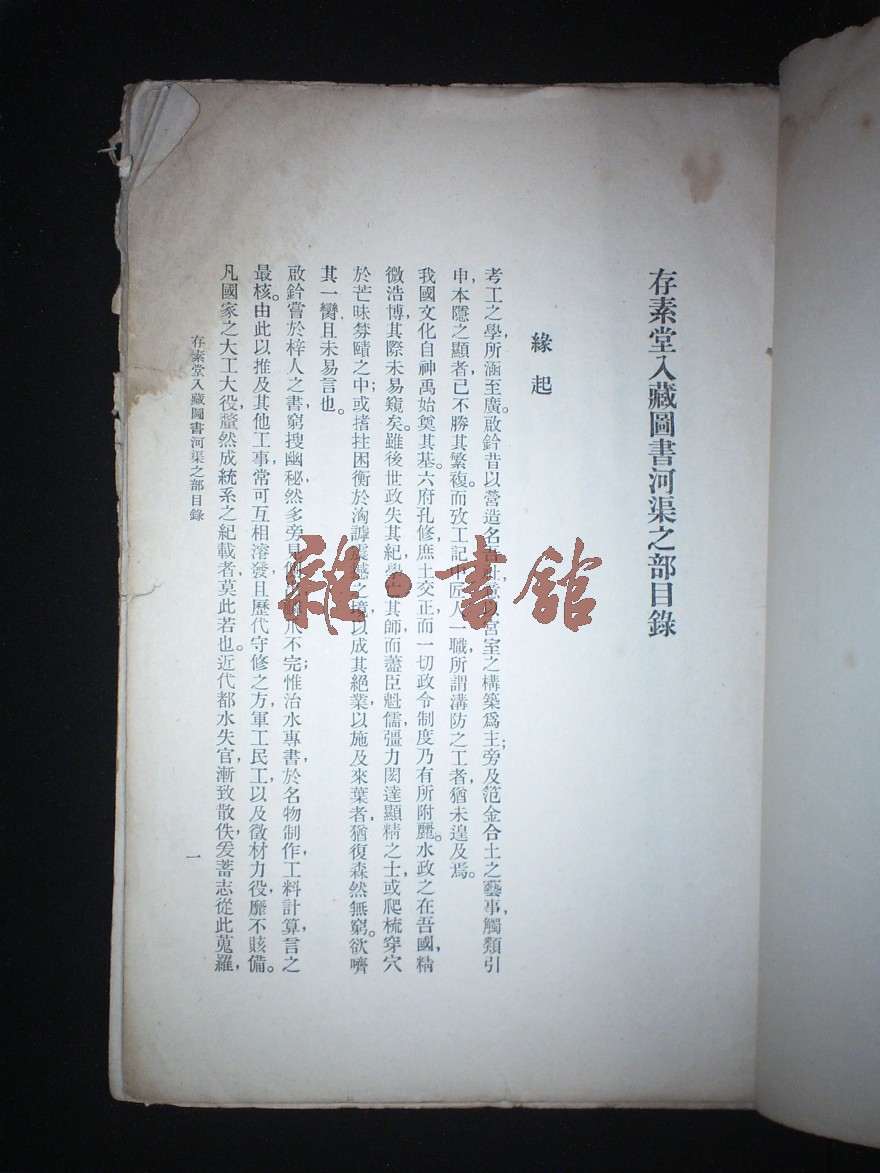 存素堂入藏圖書河渠之部目錄
緣起
考工之學，所涵至廣。啟鈐昔以營造名吾社，意以宮室之構築爲主；旁及范金合土之藝事，觸類引
申，本隱之顯者，已不勝其繁複。而攷工記中匠人一職，所謂溝防之工者，猶未遑及焉。
我國文化自神禹始奠其基。六府孔修，庶土交正，而一切政令制度乃有所附麗。水政之在吾國，精
微浩博，其際未易窺矣。雖後世政失其紀，學失其師，而藎臣魁儒，彊力閎達顯精之士，或爬梳穿穴
於芒昧棼賾之中；或撦拄困衡於洶謼震撼之境，以成其絕業，以施及來葉者，猶復森然無窮。欲嚌
其一臠，且未易言也。
啟鈐嘗於梓人之書，窮搜幽秘，然多旁見側出，鱗爪不完；惟治水專書，於名物制作工料計算，言之
最核。由此以推及其他工事，常可互相溶發，且歷代守修之方，軍工民工以及徵材力役，靡不賅備。
凡國家之大工大役，釐然成統系之紀載者，莫此若也。近代都水失官，漸致散佚，爰蓄志從此蒐羅，
存素堂入藏圖書河渠之部目錄
一
雜·書館